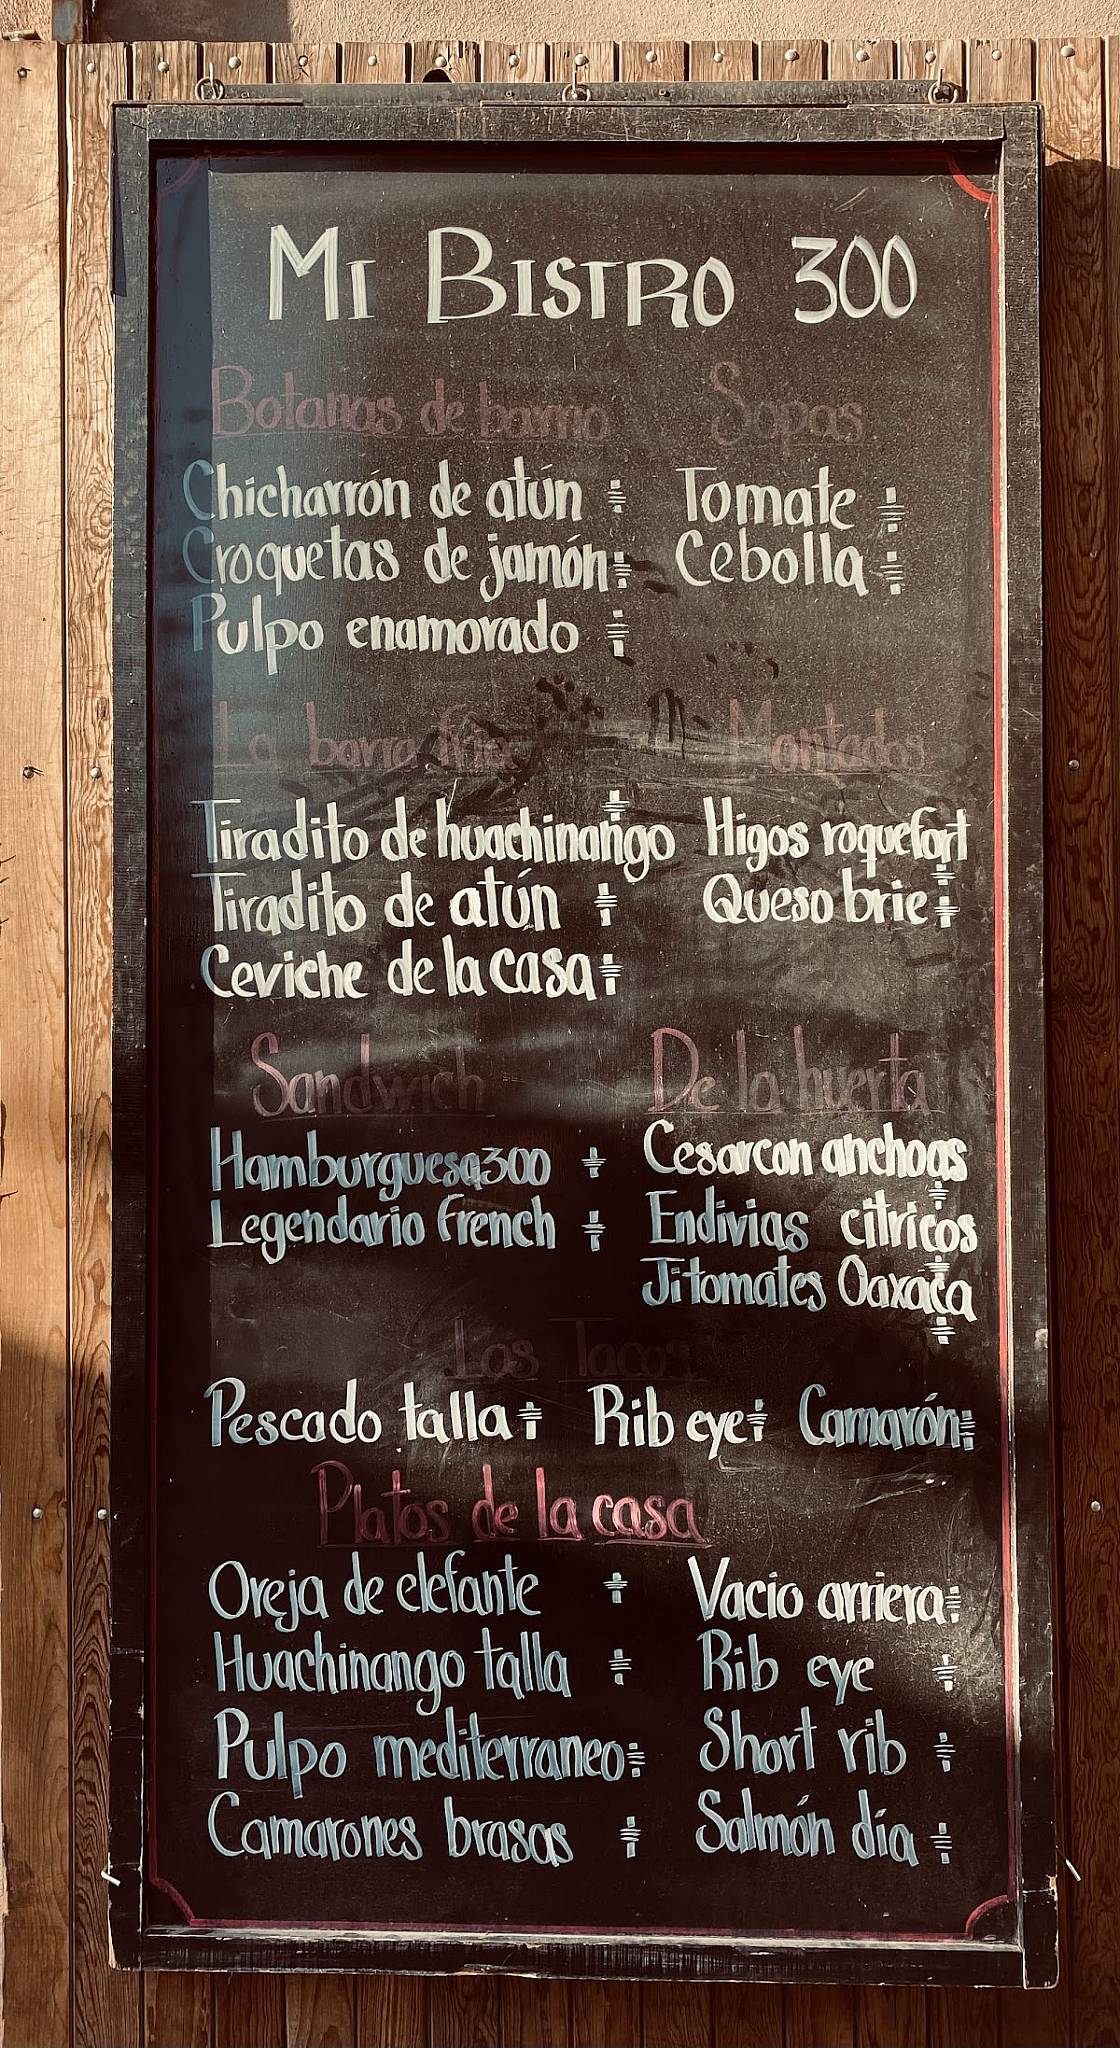 MI BISTRO 300
Botanas de barrio
Chicharrón de atún
Croquetas de jamón
Pulpo enamorado
Sopas
Tomate
Cebolla
La barra fria
Tiradito de huachinango
Tiradito de atún
Ceviche de la casa
Montados
Higos roquefort
Queso brie
Sandwich
Hamburguesa300
Legendario French
De la huerta
Cesarcon anchoas
Endivias citricos
Jitomates Oaxaca
Los Tacos
Pescado talla Rib eye Camarón
Platos de la casa
Oreja de elefante
Huachinango talla
Pulpo mediterraneo
Camarones brasas
Vacio arriera
Rib eye
Short rib
Salmón día